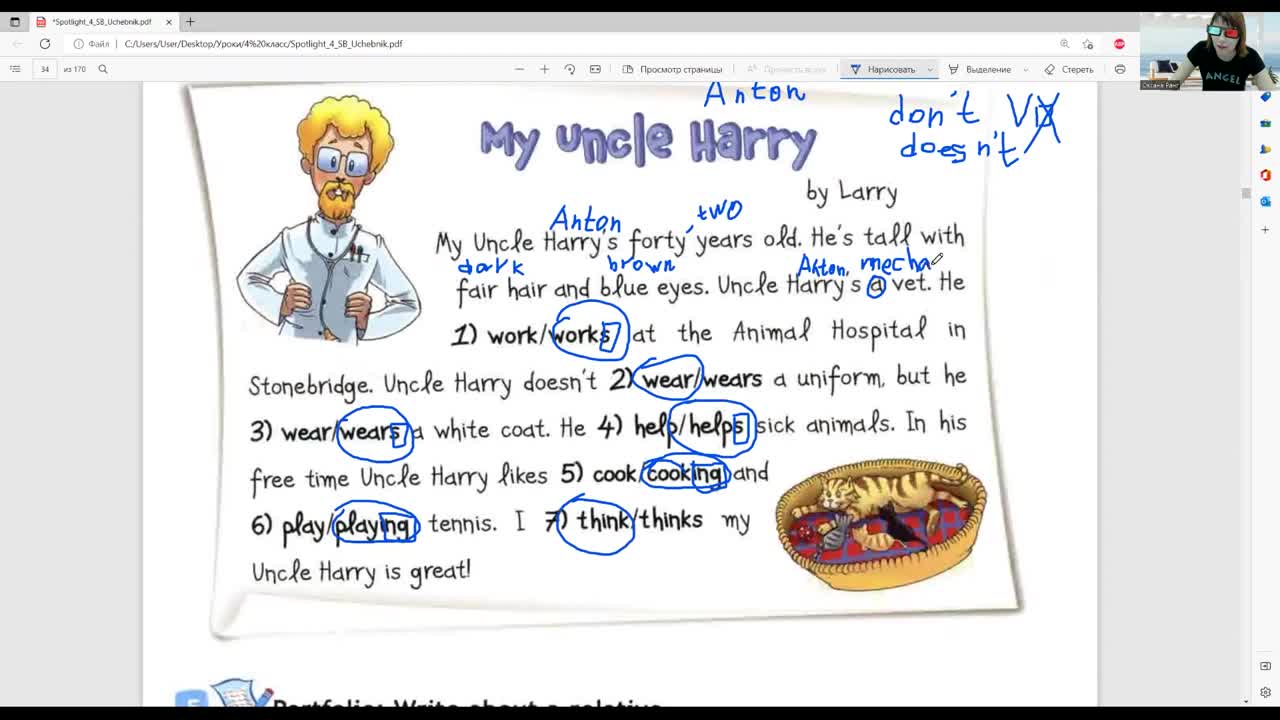 *Spotlight_4_SB_Uchebnik.pdf
Файл C:/Users/User/Desktop/Уроки/4%20класс/Spotlight_4_SB_Uchebnik.pdf
34 из 170 Просмотр страницы Прочесть вслух Нарисовать Выделение Стереть
ANGEL
Оксана Ранг
Anton
don't V
doesn't
My Uncle Harry
by Larry
Anton two
My Uncle Harry's forty years old. He's tall with
dark brown Anton, mecha
fair hair and blue eyes. Uncle Harry's a vet. He
1) work/works at the Animal Hospital in
Stonebridge. Uncle Harry doesn't 2) wear/wears a uniform, but he
3) wear/wears a white coat. He 4) help/helps sick animals. In his
free time Uncle Harry likes 5) cook/cooking and
6) play/playing tennis. I 7) think/thinks my
Uncle Harry is great!
Portfolio: Write about a relative